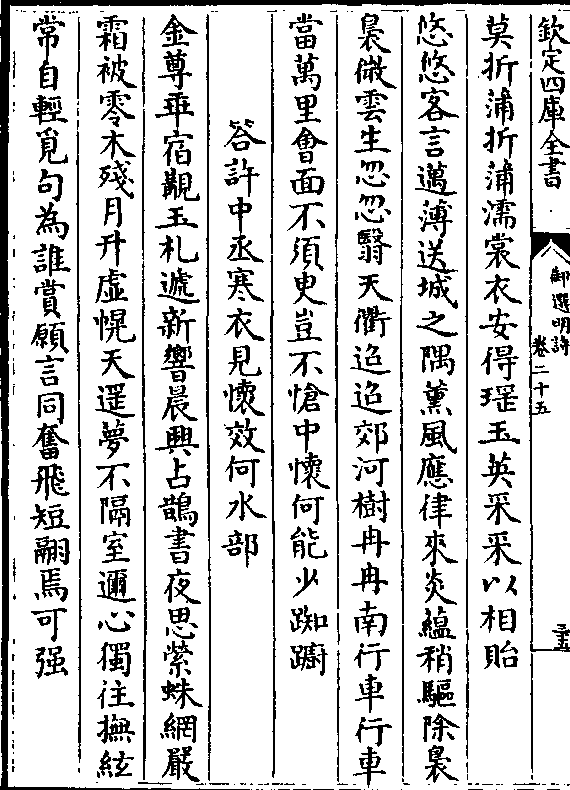 欽定四庫全書
御選明詩
卷二十五
三五
莫折蒲折蒲濡裳衣安得瑶玉英采采以相貽
悠悠客言邁薄送城之隅薰風應律來炎藴稍驅除裊
裊微雲生忽忽翳天衢迢迢郊河樹冉冉南行車行車
當萬里㑹面不須臾豈不愴中懷何能少踟躕
答許中丞寒衣見懷效何水部
金尊乖宿覯玉札遞新響晨興占鵲書夜思縈蛛網嚴
霜被零木殘月升虛幌天遥夢不隔室邇心獨往撫絃
常自輕覓句為誰賞願言同奮飛短翮焉可强